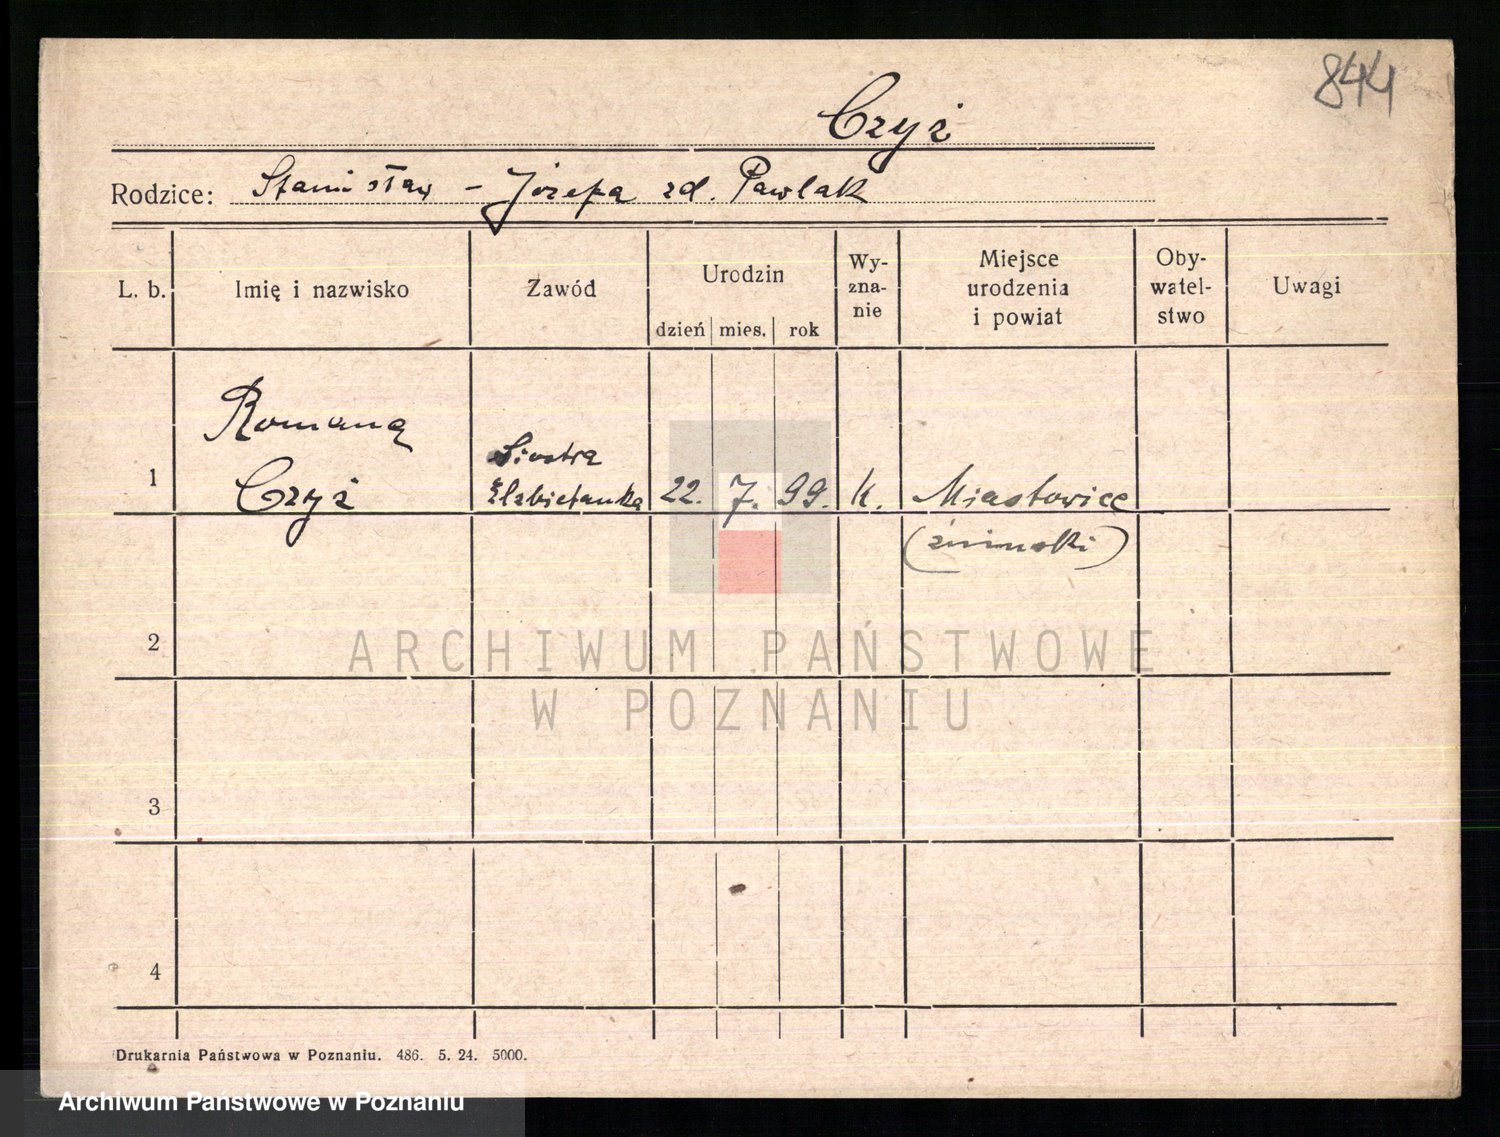 844
Czyż
Rodzice: Stanisław - Józefa zd. Pawlak
L. b. Imię i nazwisko Zawód Urodzin dzień mies. rok Wy-zna-nie Miejsce urodzenia i powiat Oby-watel-stwo Uwagi
Romana
Siostra
1 Czyż Elżbietanka 22. 7. 99. k. Miastowice
(żniński)
2
ARCHIWUM PAŃSTWOWE
W POZNANIU
3
4
Drukarnia Państwowa w Poznaniu. 486. 5. 24. 5000.
Archiwum Państwowe w Poznaniu